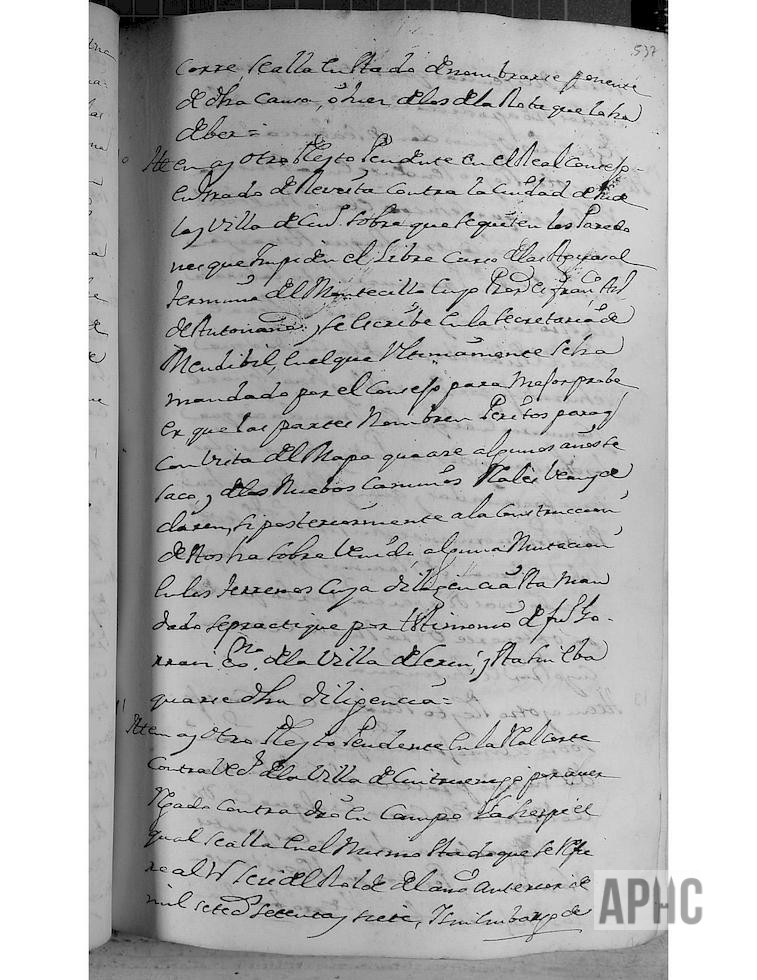 537
corre, se alla en stado de nombrarse ponente
de dha Causa, o bien de los de la Rota que la ha
de ber =
10 Itten ay otro Pleyto Pendente en el Real Consejo
en Grado de Revista contra la Ciudad de
la, Villa de sobre que se quiten las Parede
nes que Impiden el Libre Curso de las Aguas al
termino del Montecillo Cuyo es
de Antoñana, y se escribe en la Secretaria de
Mendibil, en el que Ultimamente se ha
mandado por el Consejo para Mejor probe
er que las partes Nombren Peritos para q
con Vista del Mapa que are algunos años se
saco, y de los Nuebos Caminos Rales Vean y de
claren, si posteriormente a la Construccion
de Nostra sobre Venido alguna Mutacion
en los terrenos Cuya diligencia sta man
dado se practique por testimonio de
de la Villa de y sta sin eba
quarse dha diligencia =
11 Itten ay otro Pleyto Pendente en la Real Corte
contra de la Villa de Cintruenigo por aver
contra en Campo el
qual se alla en el Mismo stado que se Refi
re al Nº seis del Rolde del año Anterior de
mil setecs setenta y siete, Y sin embargo de
APHC